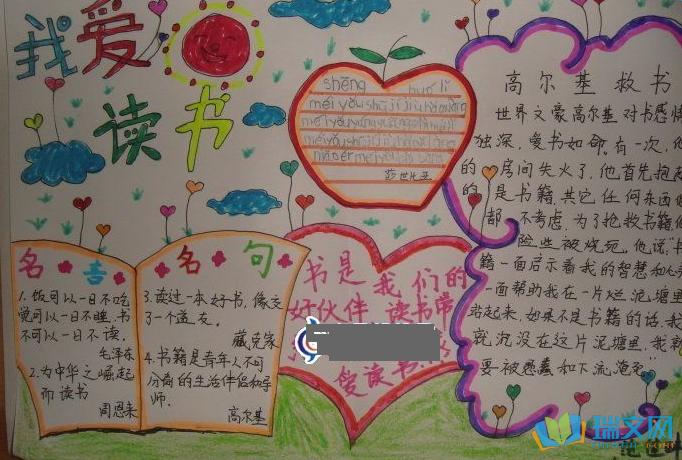 我爱
读书
shēng huó lǐ
méi yǒu shū jí jiù hǎo xiàng
莎士比亚
名言名句
1. 饭可以一日不吃
觉可以一日不睡，书
不可以一日不读。
毛泽东
2. 为中华之崛起
而读书
周恩来
3. 读过一本好书，像交
了一个益友。
臧克家
4. 书籍是青年人不可
分离的生活伴侣和导
师。
高尔基
书是我们的
好伙伴 读书
爱读书
高尔基救书
世界文豪高尔基对书感情
独深，爱书如命。有一次，他
的房间失火了，他首先抱起
的是书籍，其它任何东西他
都不考虑。为了抢救书籍，他
险些被烧死。他说：“书
籍一面启示着我的智慧和心灵
一面帮助我在一片烂泥塘里
站起来，如果不是书籍的话，我
就沉没在这片泥塘里，我就
要被愚蠢和下流淹死”
瑞文网